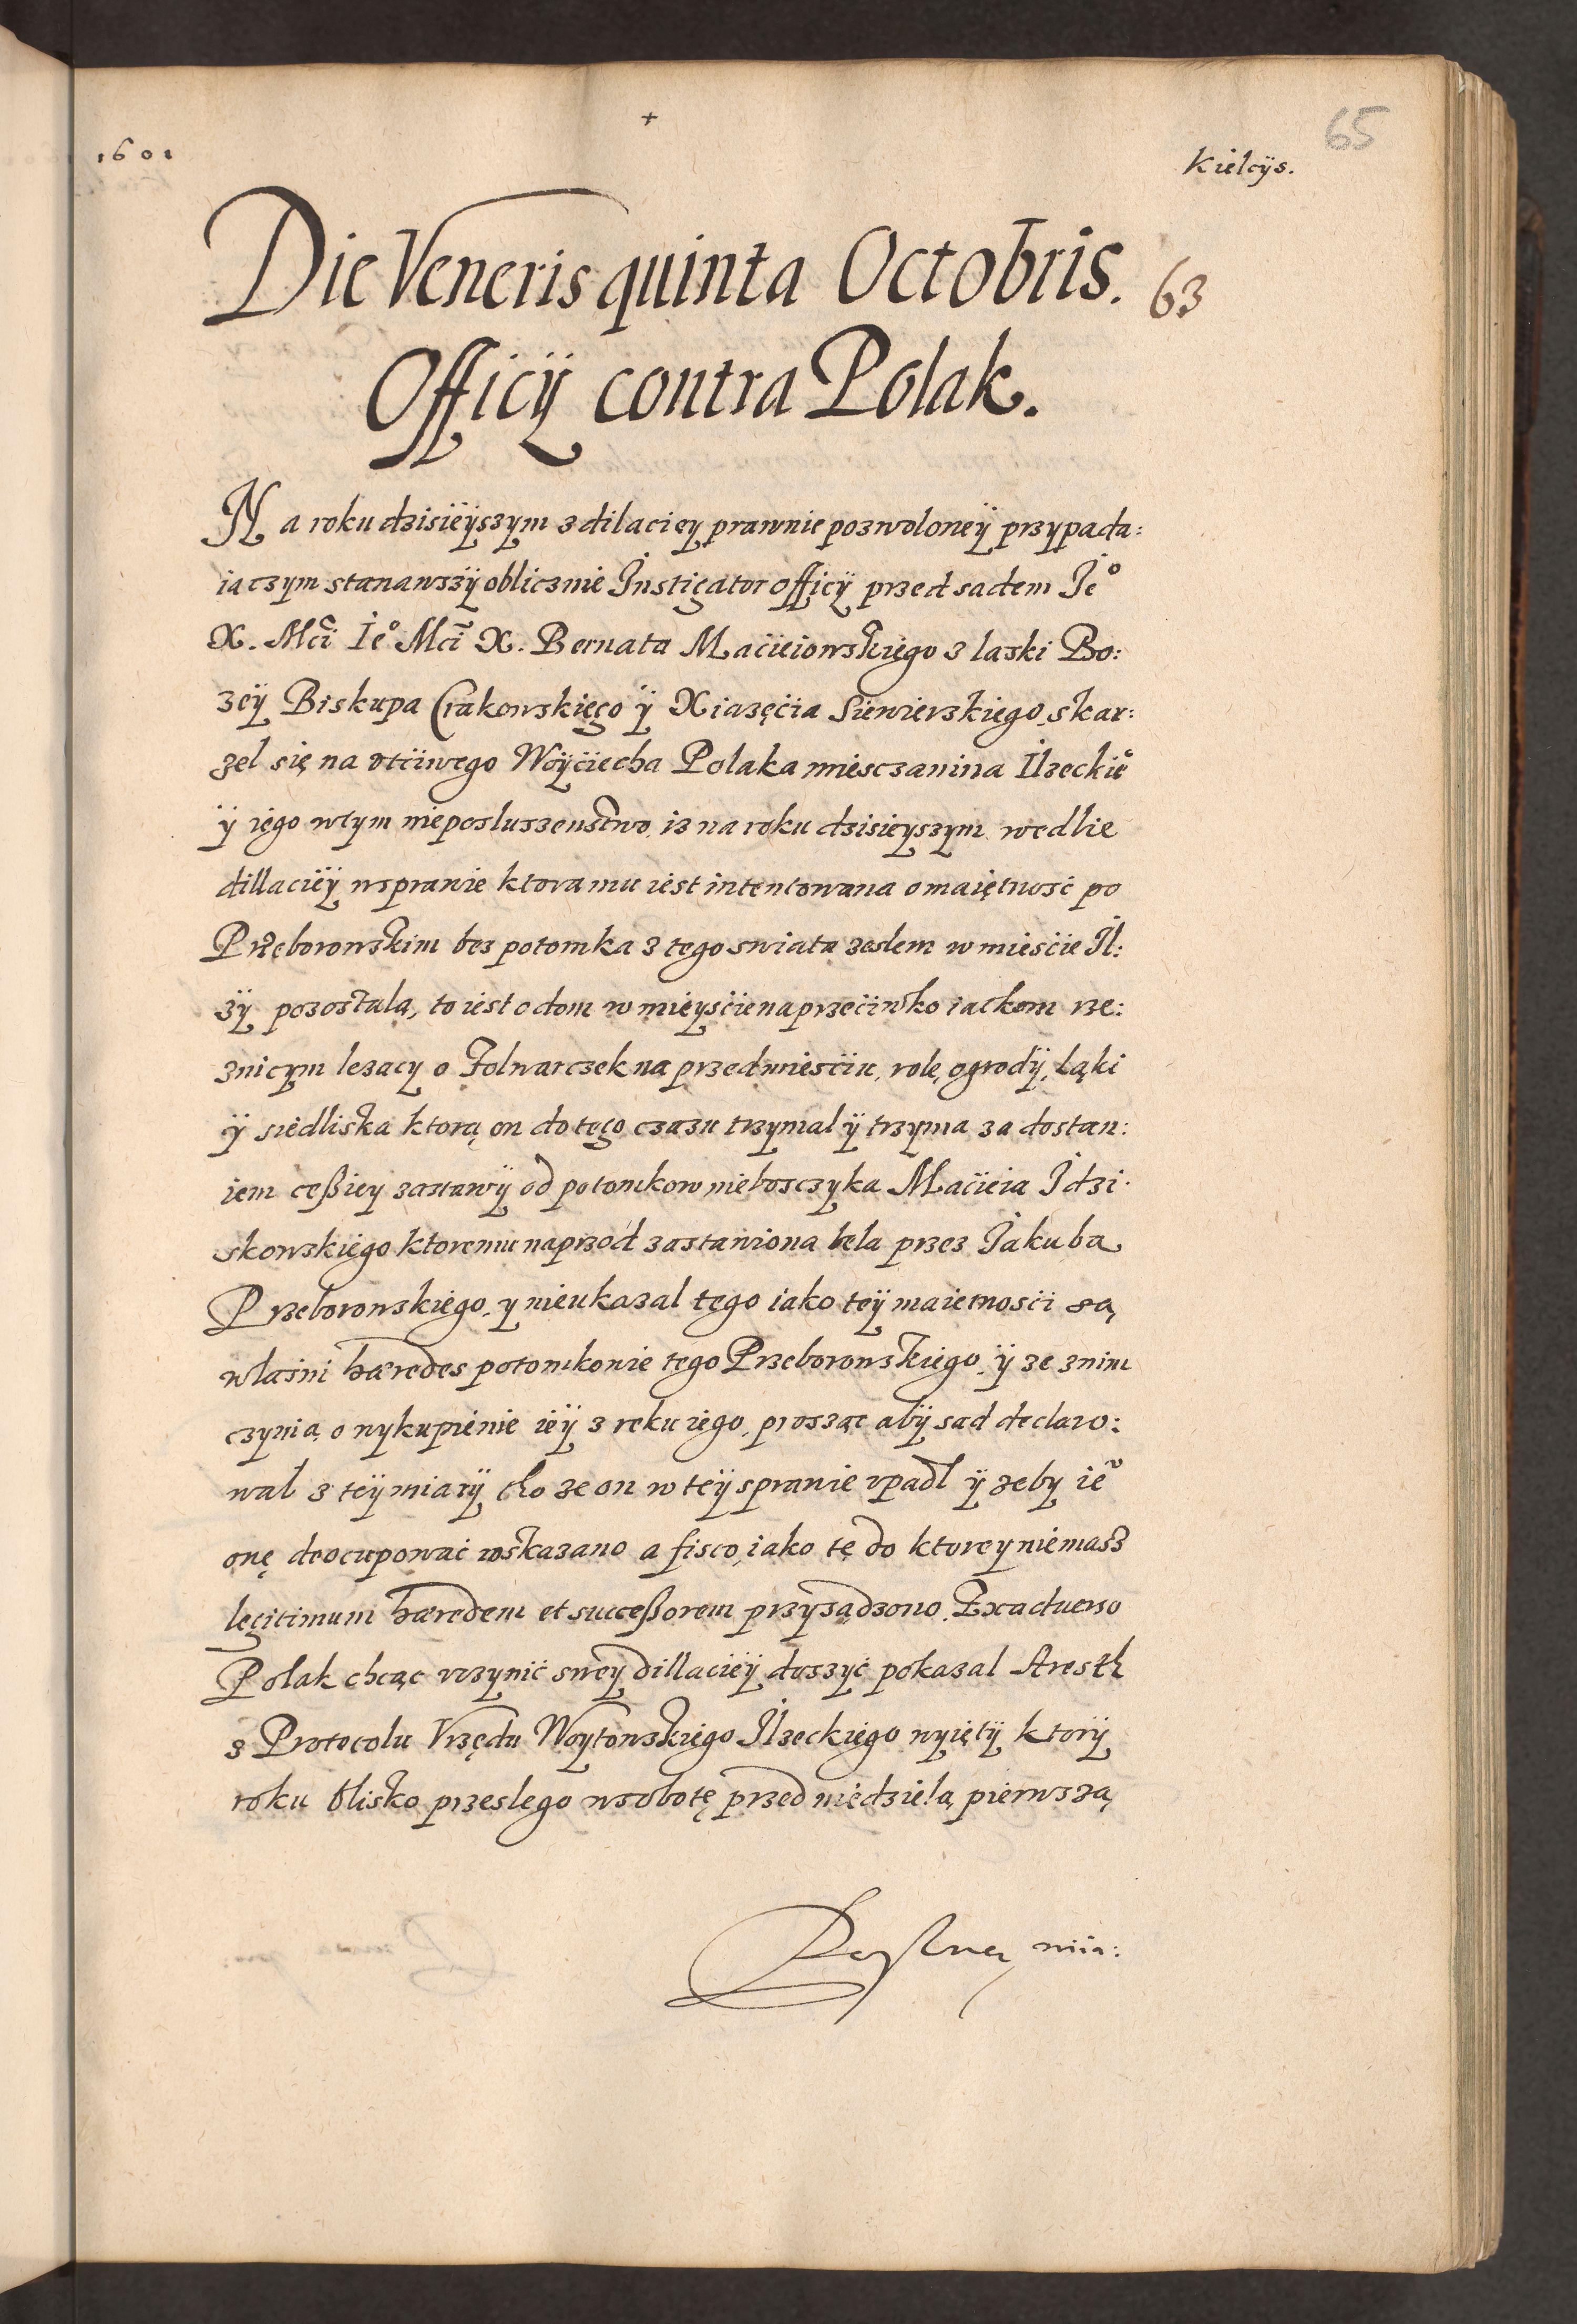 +
1601
Kielcÿs.
65
Die Veneris quinta Octobris.
63
Officÿ contra Polak.
Na roku dzisieÿszym z dilaciey prawnie pozwoloneÿ przypada:
iaczym stanawszÿ oblicznie Instigator officÿ przed sadem Ie°
X. Mci Ie° Mci X. Bernata Macieiowskiego z laski Bo:
zeÿ Biskupa Crakowskiego ÿ Xiazęcia Siewierskiego skar:
zel się na vtciwego Woÿciecha Polaka miesczanina Ilzeckie°
ÿ iego wtym nieposluszenstwo, iz na roku dzisieyszym wedlie
dillacieÿ wsprawie ktora mu iest intentowana o maiętnosc po
Przeborowskim bez potomka z tego swiata zeslem w miescie Il:
zÿ pozostalą, to iest o dom w mieyscie naprzeciwko iatkom rze:
znicym lezacy o Folwarczek na przedmiesciu, rolę, ogrodÿ, łąki
ÿ siedliska ktorą on do tego czasu trzymal ÿ trzyma za dostan:
iem ceßiey zastawÿ od potomkow nieboszczyka Macieia Idzi:
skowskiego ktoremu naprzod zastawiona bela przez Iakuba
Przeborowskiego, y nieukazal tego iako teÿ maietnosci są
wlasni hæredes potomkowie tego Przeborowskiego, ÿ ze znim
czynia o wykupienie ieÿ z reku iego, prosząc abÿ sad declaro:
wal z teÿ miarÿ tho ze on w teÿ sprawie vpadl ÿ zeby ie°
onę deocupowac wskazano a fisco, iako tę do ktorey niemasz
legitimum hæredem et succeßorem przysądzono. Exaduerso
Polak chcąc vczynić swey dillacieÿ doszyć pokazal Aresth
z Protocolu Vrzędu Woytowskiego Ilzeckiego wyiętÿ ktorÿ
roku blisko przeslego wsobotę przed niedzielą pierwszą